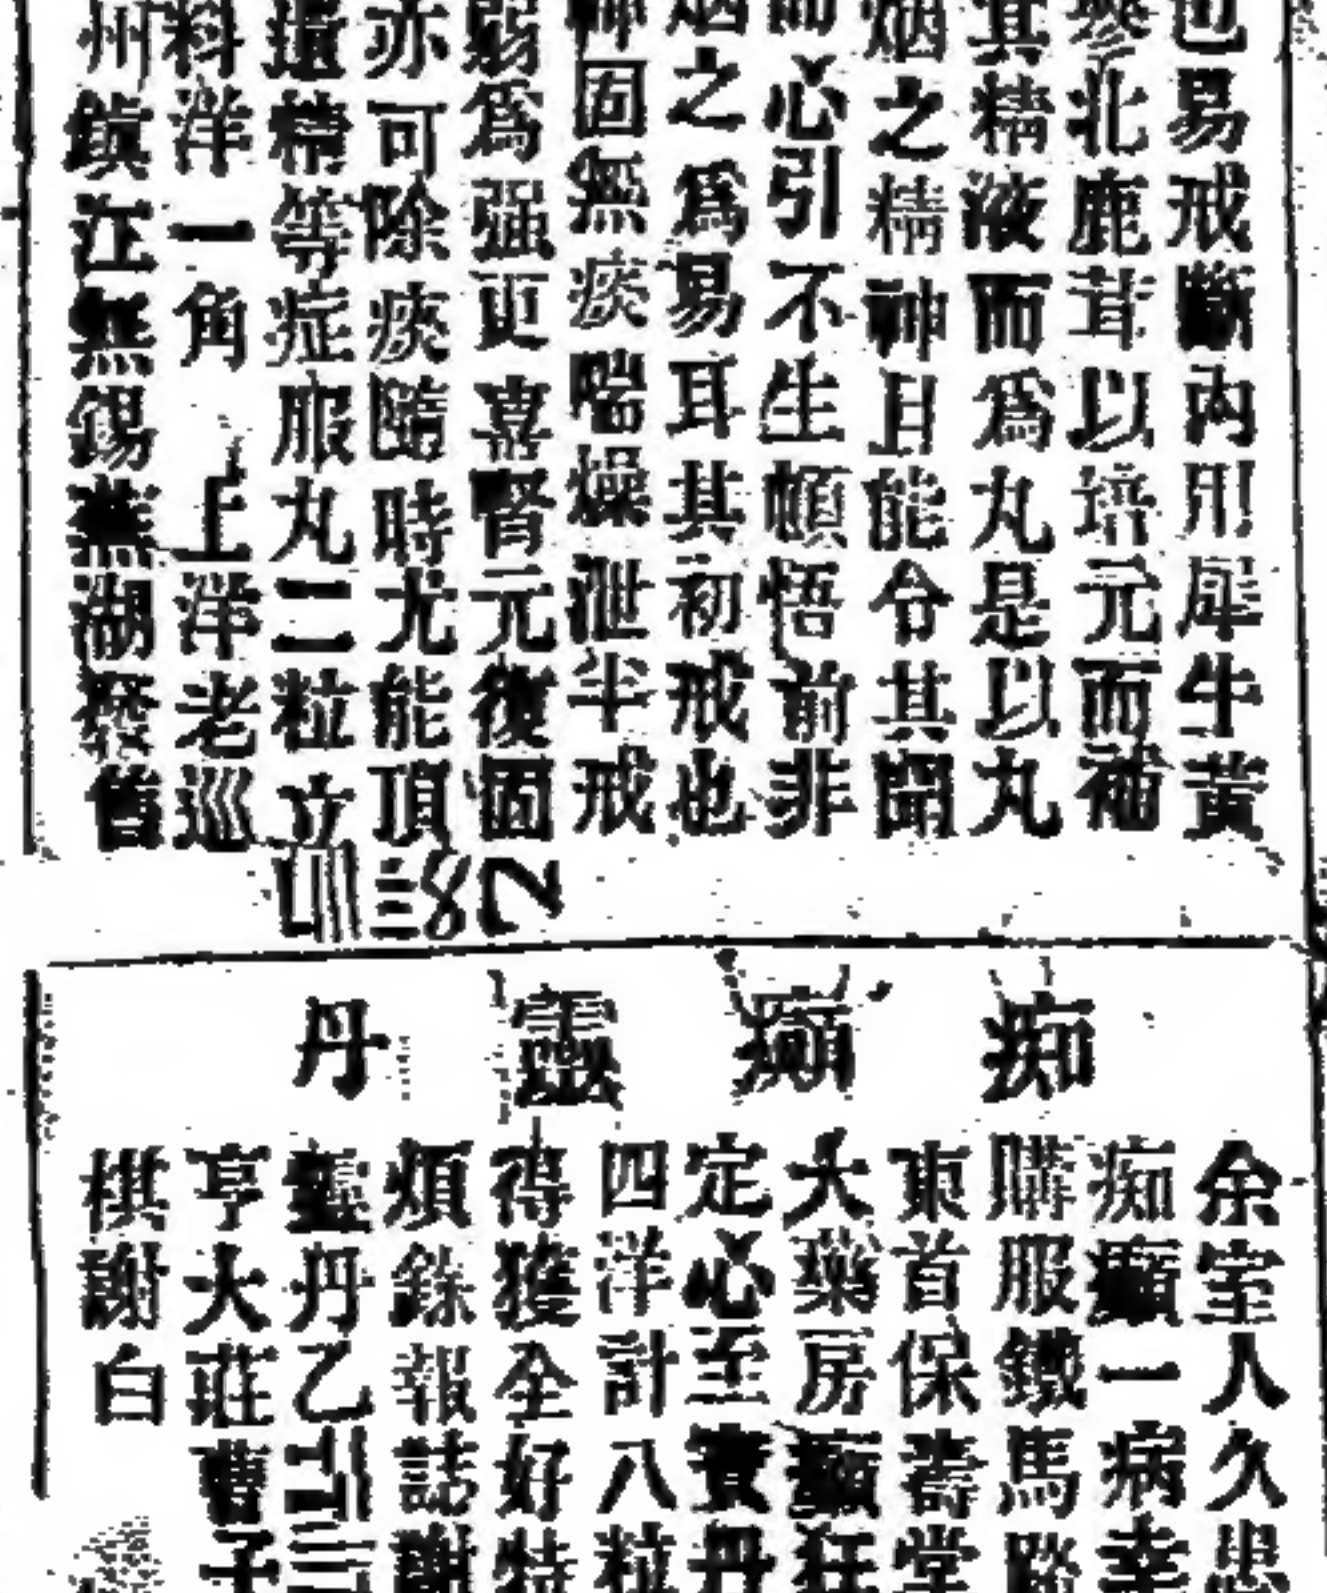 也易戒斷內用犀牛黃
參北鹿茸以培元而補
其精液而爲丸是以丸
烟之精神且能令其開
而心引不生頓悟前非
烟之爲易耳其初戒也
神固無痰喘燥泄半戒
弱爲强更喜腎元復固
亦可除痰隨時尤能頂
遺精等症服丸二粒立
科洋一角 上洋老巡
州鎮江無錫蕪湖發售
痴癲靈丹
余室人久患
痴癲一病幸
購服鐵馬路
東首保壽堂
大藥房癲狂
定心至寶丹
四洋計八粒
得獲全好特
煩錄報誌謝
靈丹乙
亨大莊曹子
棋謝白